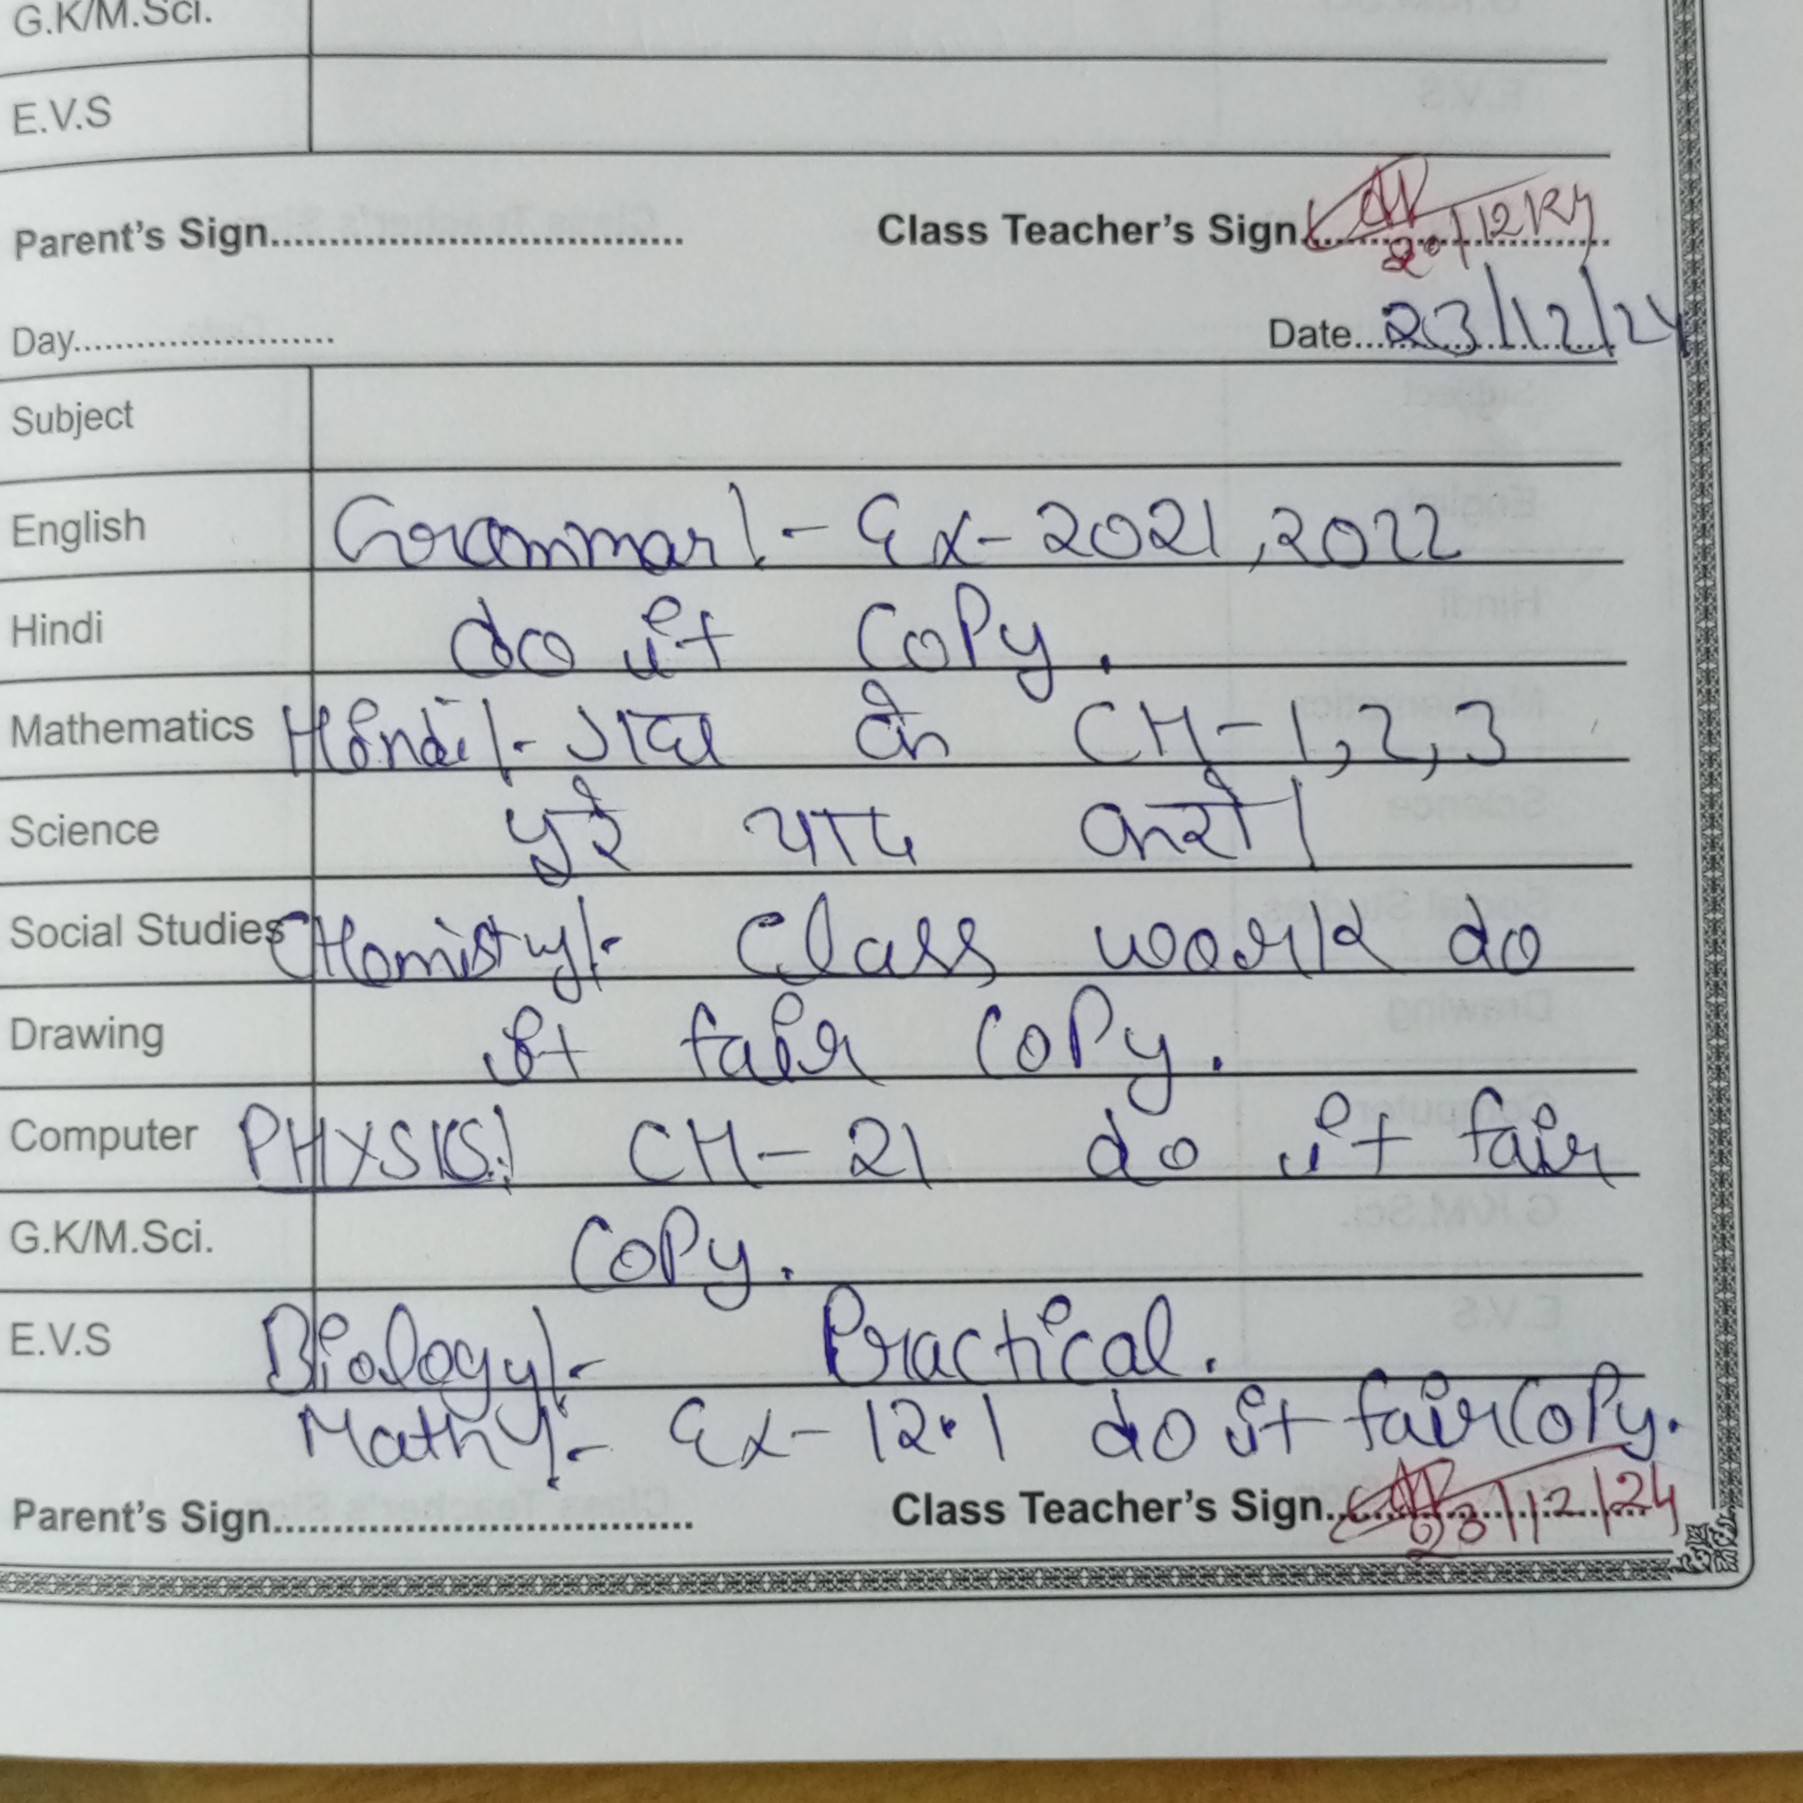 G.K/M.Sci.
E.V.S
Parent's Sign.................................. Class Teacher's Sign............ 20/12/24
Day......................... Date... 23/12/24
Subject
English Grammar!- Ex-2021,2022
Hindi do it Copy.
Mathematics Hindi!- गद्य के CH-1,2,3
Science पुरे याद करो।
Social Studies CHemistry!- Class work do
Drawing it fair Copy.
Computer PHYSICS! CH-21 do it fair
G.K/M.Sci. Copy.
E.V.S Biology!- Practical.
Math!- Ex-12.1 do it fair Copy.
Parent's Sign.................................. Class Teacher's Sign............ 23/12/24